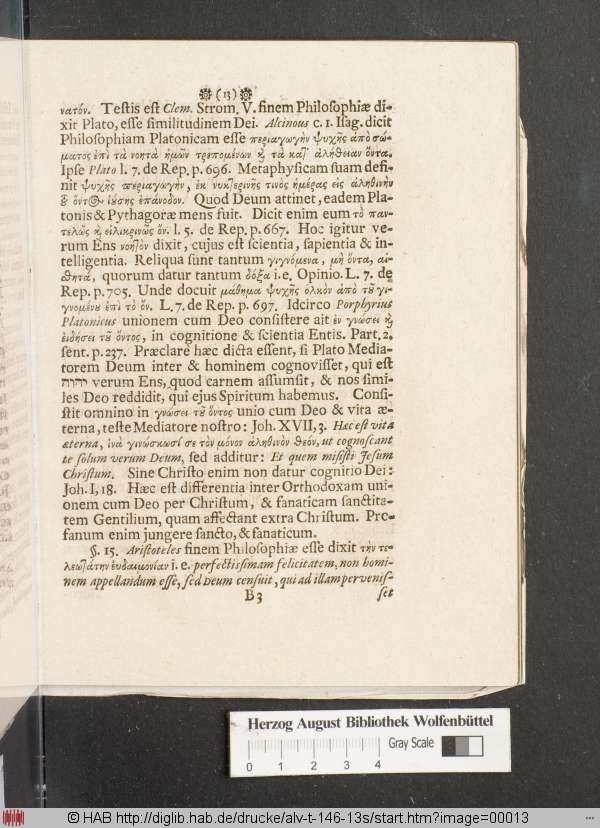 ❁ (13) ❁
νατόν. Testis est Clem. Strom. V. finem Philosophiæ di-
xit Plato, esse similitudinem Dei. Alcinous c. 1. Isag. dicit
Philosophiam Platonicam esse περιαγωγὴν ψυχῆς ἀπὸ σώ-
ματος ἐπὶ τὰ νοητὰ ἡμῶν τρεπομένων ϗ τὰ κατ' ἀλήθειαν ὄντα.
Ipse Plato l. 7. de Rep. p. 696. Metaphysicam suam defi-
nit ψυχῆς περιαγωγὴν, ἐκ νυκτερινῆς τινὸς ἡμέρας εἰς ἀληθινὴν
ȣ ὄντος ἰούσης ἐπάνοδον. Quod Deum attinet, eadem Pla-
tonis & Pythagoræ mens fuit. Dicit enim eum τὸ παν-
τελῶς ϗ εἰλικρινῶς ὄν. l. 5. de Rep. p. 667. Hoc igitur ve-
rum Ens νοητὸν dixit, cujus est scientia, sapientia & in-
telligentia. Reliqua sunt tantum γιγνόμενα, μὴ ὄντα, αἰ-
σθητά, quorum datur tantum δόξα i. e. Opinio. L. 7. de
Rep. p. 705. Unde docuit μάθημα ψυχῆς ὁλκὸν ἀπὸ τȣ͂ γι-
γνομένȣ ἐπὶ τὸ ὄν. L. 7. de Rep. p. 697. Idcirco Porphyrius
Platonicus unionem cum Deo consistere ait ἐν γνώσει ϗ
εἰδήσει τȣ͂ ὄντος, in cognitione & scientia Entis. Part. 2.
sent. p. 237. Præclare hæc dicta essent, si Plato Media-
torem Deum inter & hominem cognovisset, qui est
יהוה verum Ens, quod carnem assumsit, & nos simi-
les Deo reddidit, qui ejus Spiritum habemus. Consi-
stit omnino in γνώσει τȣ͂ ὄντος unio cum Deo & vita æ-
terna, teste Mediatore nostro: Joh. XVII, 3. Hæc est vita
æterna, ἱνὰ γινώσκωσί σε τὸν μόνον ἀληθινὸν θεόν, ut cognoscant
te solum verum Deum, sed additur: Et quem misisti Jesum
Christum. Sine Christo enim non datur cognitio Dei:
Joh. I, 18. Hæc est differentia inter Orthodoxam uni-
onem cum Deo per Christum, & fanaticam sanctita-
tem Gentilium, quam affectant extra Christum. Pro-
fanum enim jungere sancto, & fanaticum.
§. 15. Aristoteles finem Philosophiæ esse dixit τὴν τε-
λεωτάτην ἐυδαιμονίαν i. e. perfectissimam felicitatem, non homi-
nem appellandum esse, sed Deum censuit, qui ad illam pervenis-
B 3 set
Herzog August Bibliothek Wolfenbüttel
0 1 2 3 4 Gray Scale
© HAB http://diglib.hab.de/drucke/alv-t-146-13s/start.htm?image=00013